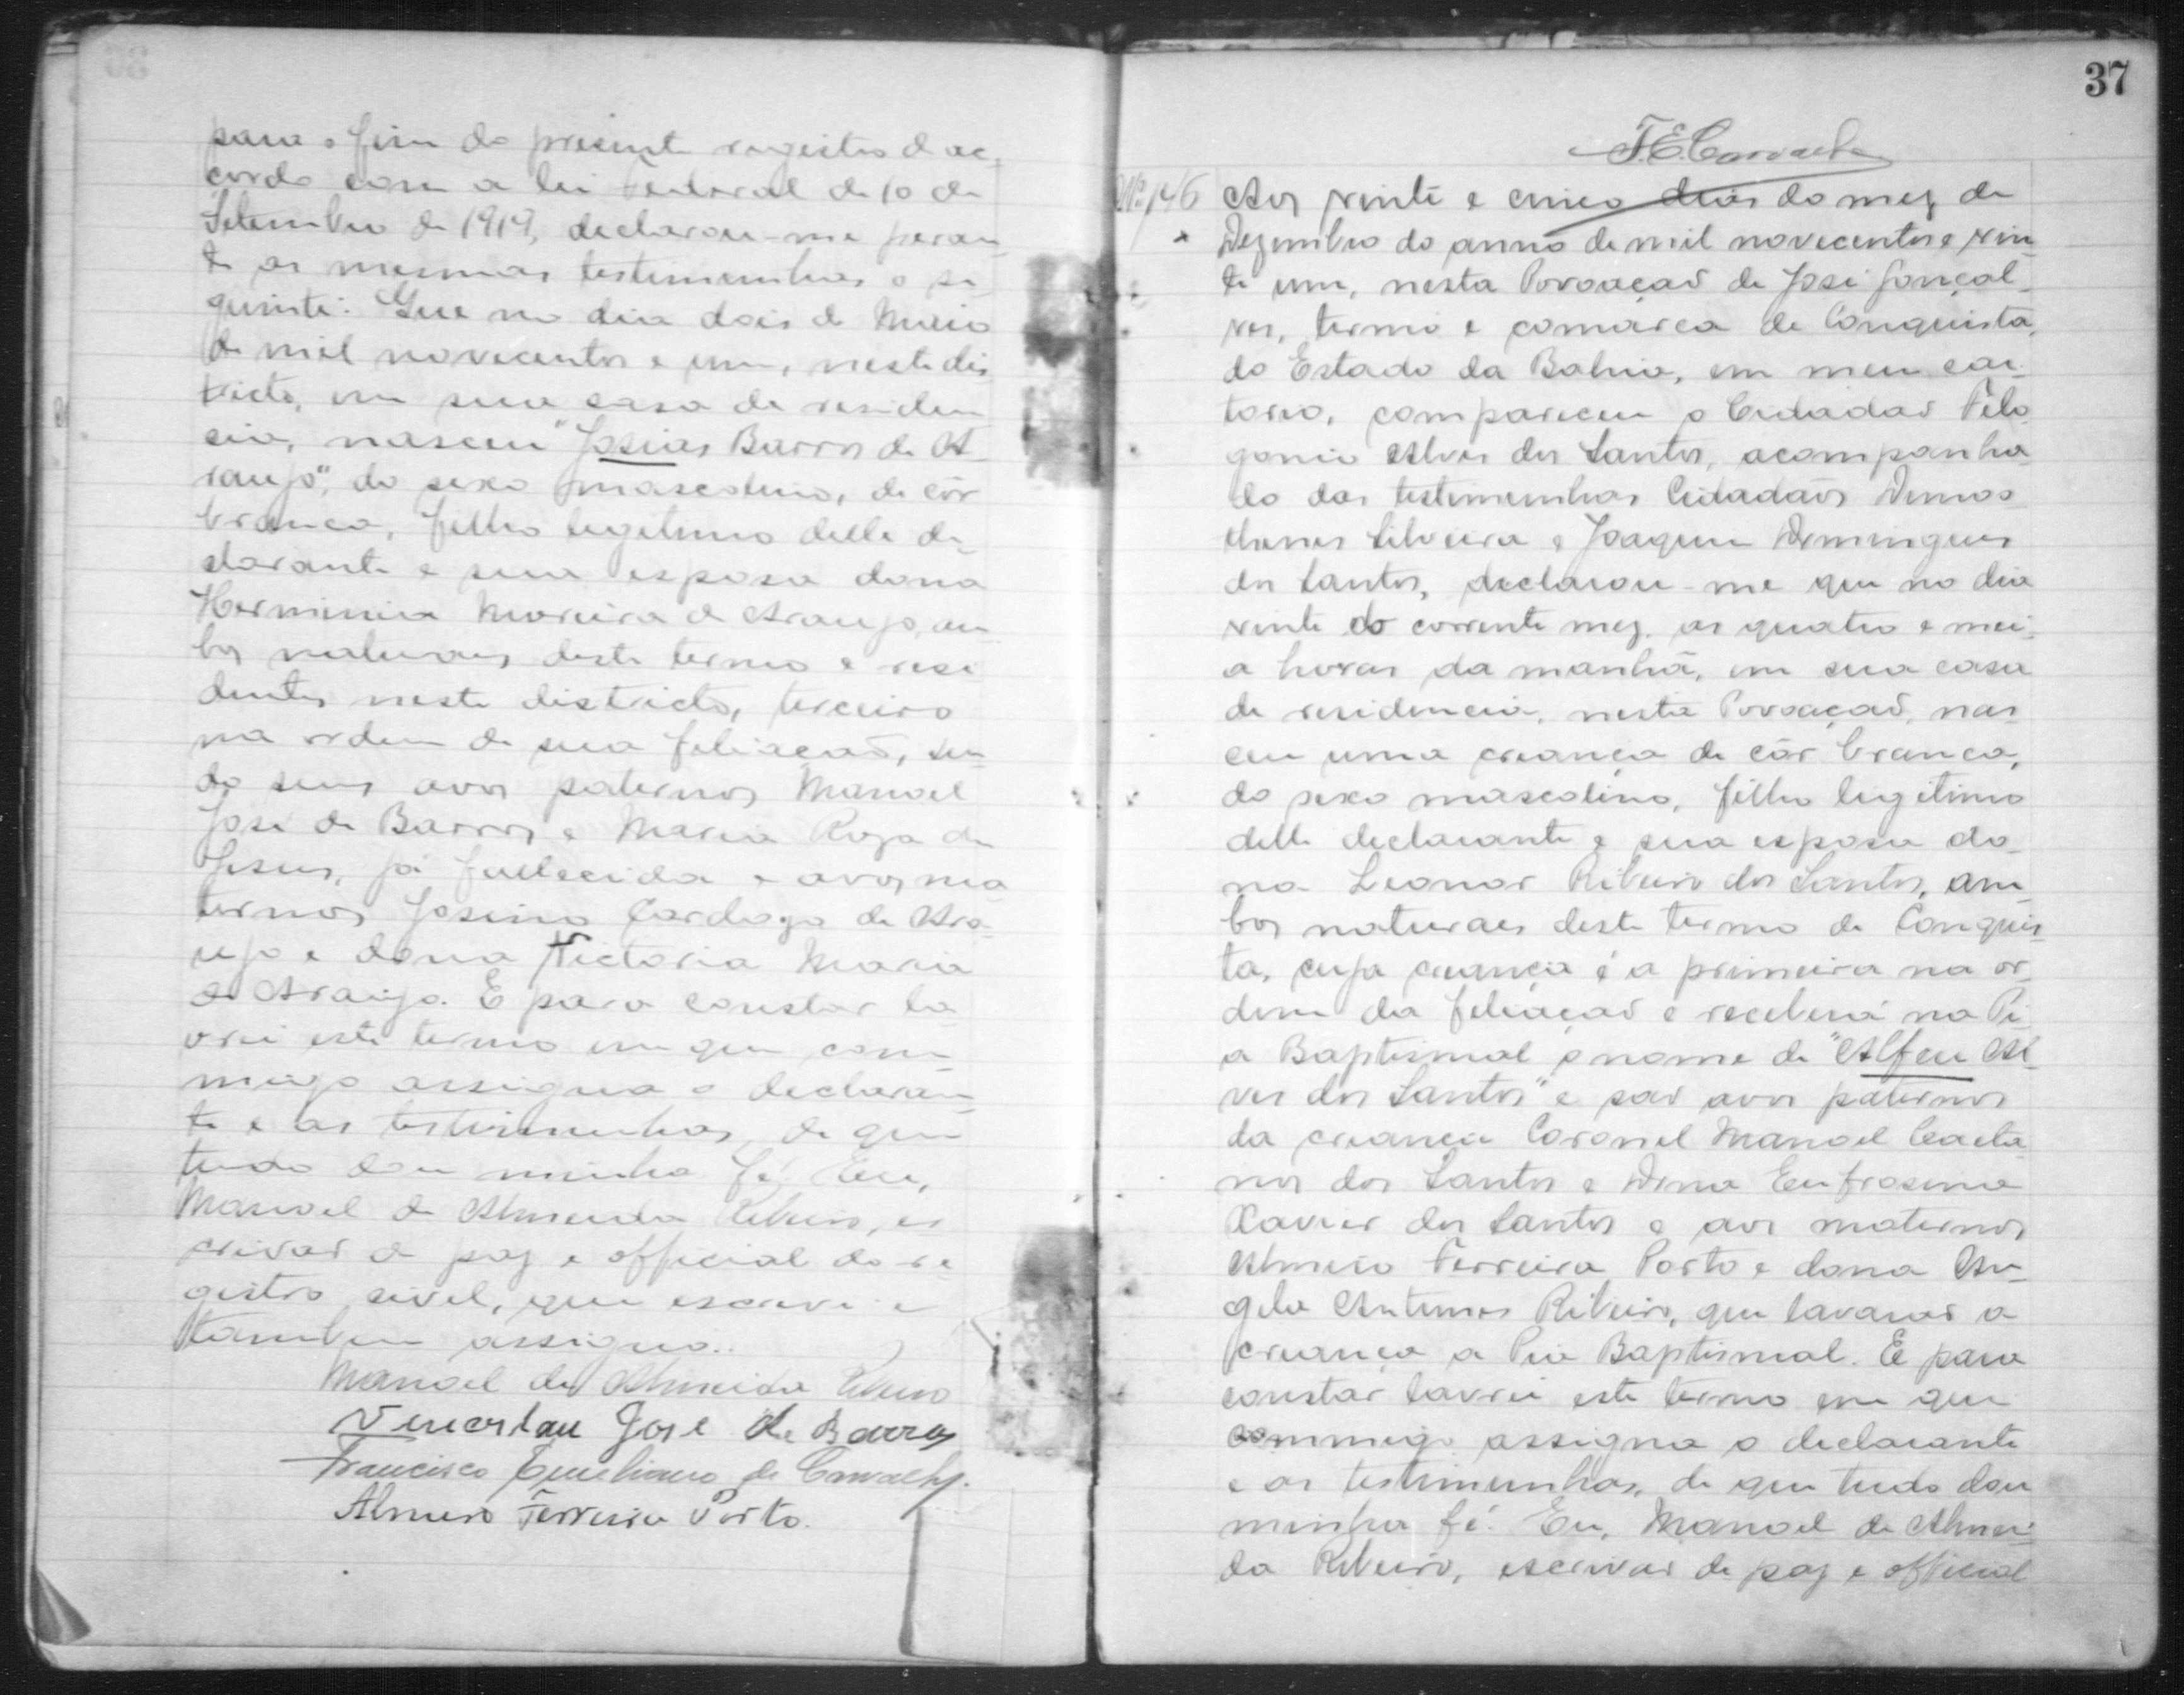 para o fim do presente registro d ac
cordo com a lei Federal de 10 de
Setembro de 1919, declarou-me peran
te as mesmas testimunhas o se
guinte: Que no dia dois de Maio
de mil novecentos e um, neste dis
tricto, em sua casa de residen
cia, nasceu "Josias Barros de A
raujo", do sexo mascolino, de côr
branca, filho legitimo delle de
clarante e sua esposa dona
Herminia Moreira de Araujo, am
bos naturaes deste termo e resi
dentes neste districto, terceiro
na ordem de sua filiação, sen
do seus avos paternos Manoel
José de Barros e Maria Roza de
Jesus, já fallecida e avos ma
ternos Josino Cardozo de Ara
ujo e dona Victoria Maria
de Araujo. E para constar la
vrei este termo em que com
migo assigna o declaran
te e as testimunhas, de que
tudo dou minha fé. Eu,
Manoel de Almeida Ribeiro, es
crivão de paz e official do re
gistro sivel, que escrevi e
tambem assigno..
Manoel de Almeida Ribeiro
Vencerlau José de Barros
Francisco Emiliano de Carvalho.
Almero Ferreira Porto.
37
F.E.Carvalho
Nº 146 Aos vinte e cinco dias do mez de
Dezembro do anno de mil novecentos e vin
te um, nesta Povoação de José Gonçal
ves, termo e comarca de Conquista,
do Estado da Bahia, em meu car
torio, compareceu o Cidadão Filo
gonio Alves dos Santos, acompanha
do das testimunhas Cidadãos Demos
thenes Silveira e Joaquim Domingues
dos Santos, declarou-me que no dia
vinte do corrente mez, as quatro e mei
a horas da manhã, em sua casa
de residencia, nesta Povoação, nas
ceu uma creança de côr branca,
do sexo mascolino, filho legitimo
delle declarante e sua esposa do
na Leonor Ribeiro dos Santos, am
bos naturaes deste termo de Conquis
ta, cuja creança é a primeira na or
dem da filiação e receberá na Pi
a Baptismal o nome de "Alfeu Al
ves dos Santos" e são avos paternos
da creança Coronel Manoel Caeta
no dos Santos e Dona Eufrosina
Xavier dos Santos e avos maternos
Almero Ferreira Porto e dona An
gela Antunes Ribeiro, que lavarão a
creança a Pia Baptismal. E para
constar lavrei este termo em que
commigo assigna o declarante
e as testimunhas, de que tudo dou
minha fé. Eu, Manoel de Almei
da Ribeiro, escrivão de paz e official